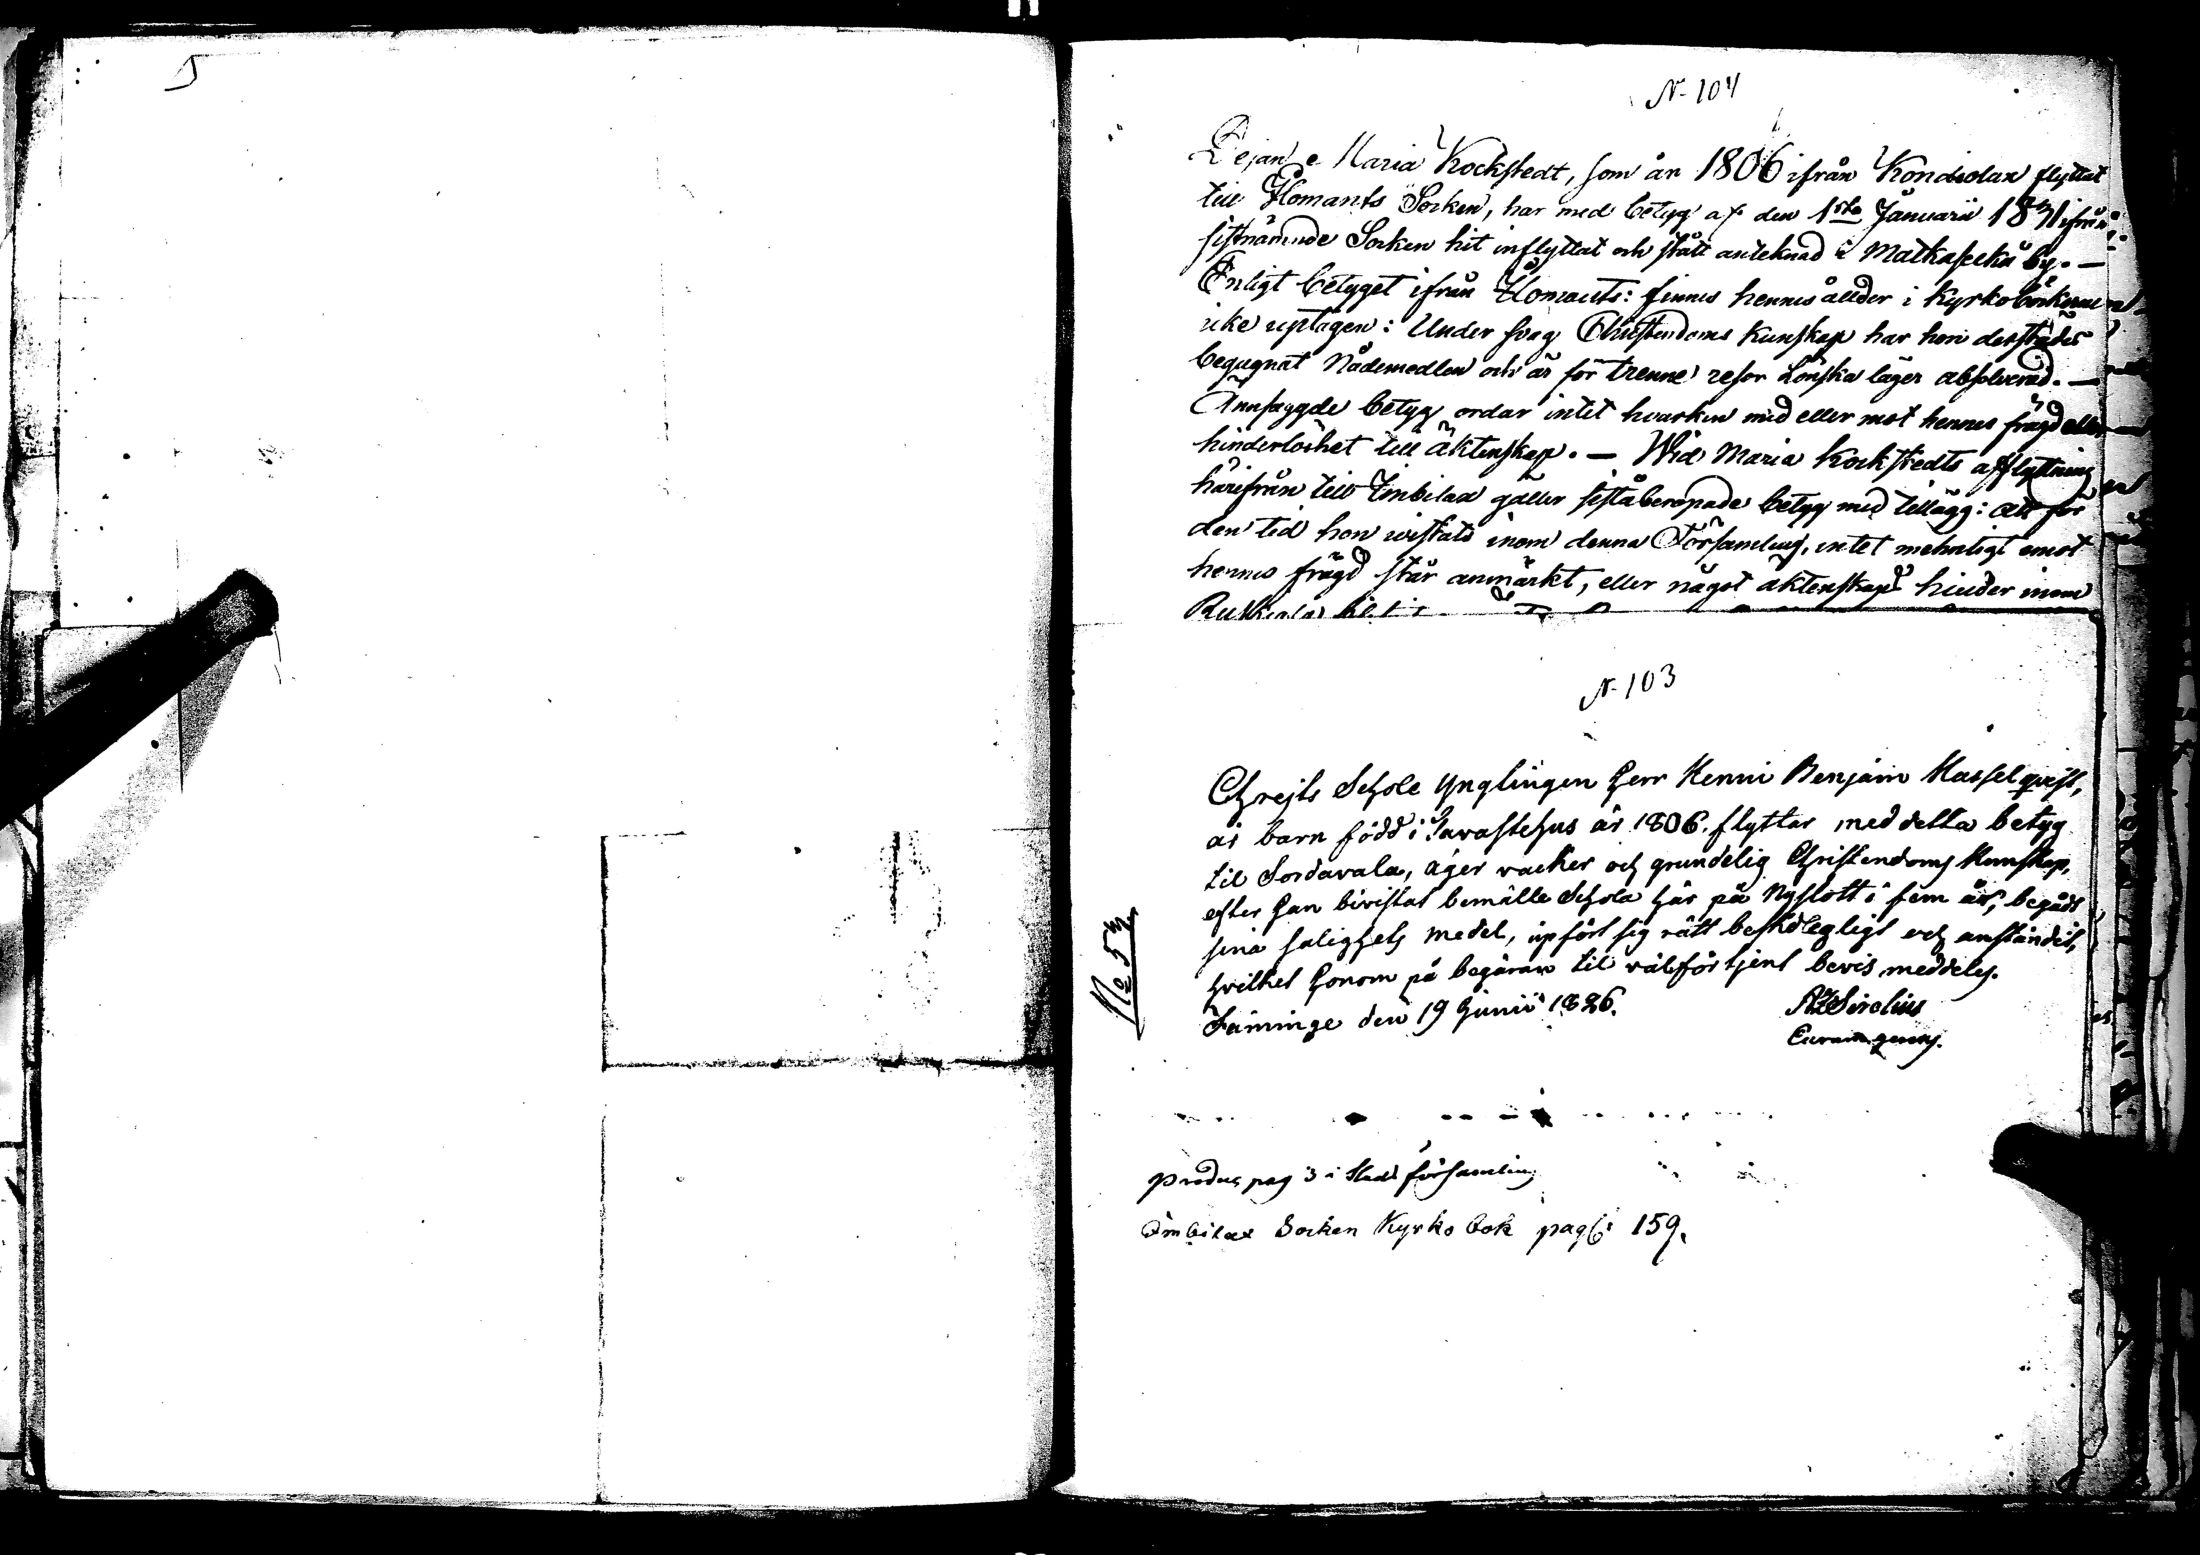 N 104
Pejan e Maria Kockstedt, som år 1806 ifrån Kondiolax flyttat
till Ilomants Socken, har med betyg af den 1sta Januarii 1831 ifrån
sistnämnde Socken hit inflyttat och stått anteknad i Matkaselkä by. —
Enligt betyget ifrån Ilomants: finnes hennes ållder i Kyrkoböckerne
icke uptagen: Under svag Christendoms Kunskap har hon derstädes
begagnat Nådemedlen och är för trenne resor Lönska läger absolverad. —
Annsaggde betyg ordar intet hvarken med eller mot hennes frägd eller
hinderlöshet till äktenskap. — Wid Maria Kockstedts afflyttning
härifrån till Imbilax gäller siståberopade betyg med tillägg: att för
den tid hon wistats inom denna Församling, intet mehnligt emot
hennes frägd står anmärkt, eller något äktenskaps hinder inom
Ruskiala
N 103
Chrejts Schole Ynglingen Herr Henric Benjam Hasselquist,
är barn född i Tavastehus år 1806. flyttar med detta betyg
til Sordavala, äger vacker och grundelig Christendoms Kunskap,
efter han bivistat bemälte Schola här på Nyslott i fem år, begådt
sina salighets medel, upfört sig rätt beskedligligt och anständit,
hvilket honom på begäran til välförtjent bevis meddeles.
Säminge den 19 Junii 1826.
Sirelius
No 57
produc. pag 3 i Stads församling
Imbilax Socken Kyrko bok pag: 159.